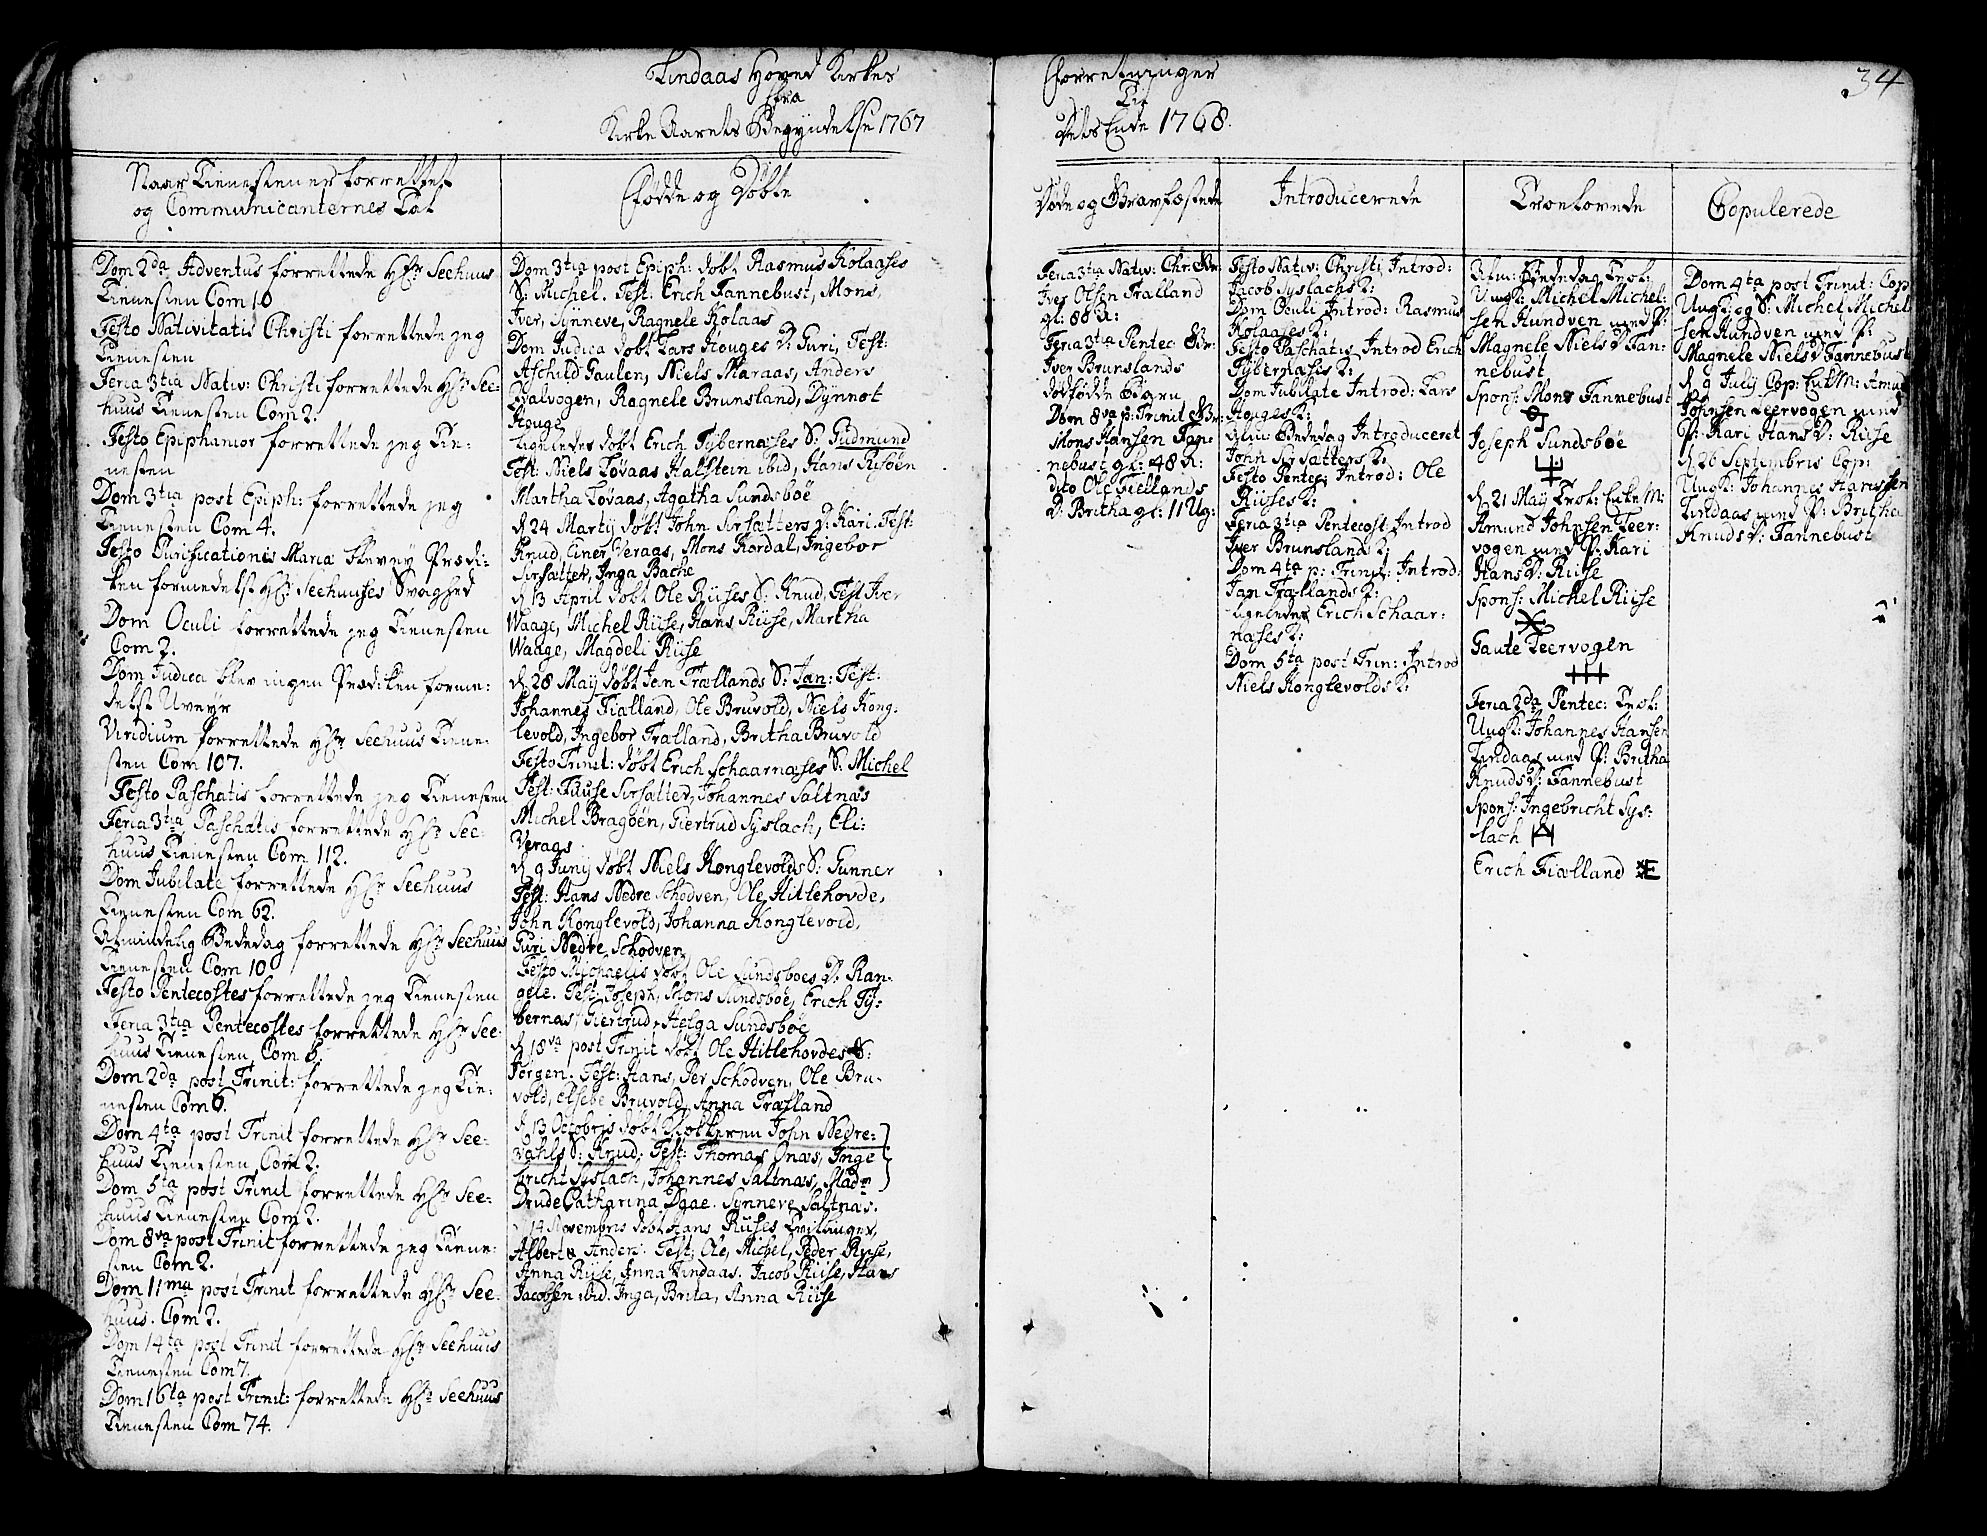 Lindaas Hoved Kirkes
fra
Kirke Aarets Begyndelse 1767
Naar Tienesten er forrettet
og Communicanternes Tal
Fødde og Døbte
Dom 2da Adventus forrettede Hr Seehuus
Tienesten Com 10
Festo Nativitatis Christi forrettede jeg
Tienesten
Feria 3tia Nativ: Christi forrettede Hr See-
huus Tienesten Com 2.
Festo Epiphanior forrettede jeg Tie-
nesten
Dom 3tia post Epiph: forrettede jeg
Tienesten Com 4.
Festo Purificationis Mariæ blev ey Prædi-
ken formedelst Hr Seehuuses Svaghed
Dom Oculi forrettede jeg Tienesten
Com 2.
Dom Judica blev ingen Prædiken forme-
delst Uveyr
Viridium forrettede Hr Seehuus Tiene-
sten Com 107.
Festo Paschatis forrettede jeg Tienesten
Feria 3tia Paschatis forrettede Hr See-
huus Tienesten Com 112.
Dom Jubilate forrettede Hr Seehuus
Tienesten Com 62.
Almindelig Bededag forrettede Hr Seehuus
Tienesten Com 10
Festo Pentecostes forrettede jeg Tienesten
Feria 3tia Pentecostes forrettede Hr See-
huus Tienesten Com 6.
Dom 2da post Trinit: forrettede jeg Tie-
nesten Com 6.
Dom 4ta post Trinit forrettede Hr See-
huus Tienesten Com 2.
Dom 5ta post Trinit forrettede Hr See-
huus Tienesten Com 2.
Dom 8va post Trinit forrettede jeg Tiene-
sten Com 2.
Dom 11ma post Trinit forrettede Hr See-
huus. Com 2.
Dom 14ta post Trinit forrettede Hr Seehuus
Tienesten Com 7.
Dom 16ta post Trinit: forrettede Hr Seehuus
Tienesten Com 74.
Dom 3tia post Epiph: døbt Rasmus Kolaases
S: Michel. Test: Erich Fannebust, Mons,
Iver, Synneve, Ragnele Kolaas
Dom Judica døbt Lars Houges D: Guri, Test:
Aschild Gaulen, Niels Maraas, Anders
Dalvogen, Ragnele Brunsland, Dynnot
Houge
Ligeledes døbt Erich Tybernæses S: Gudmund
Test: Niels Lovaas Halstein ibid, Hans Risøen
Martha Lovaas, Agatha Sundsbøe
d 24 Martij døbt John Sirsætters D: Kari. Test:
Knud, Einer Veraas, Mons Kordal, Ingebor
Sirsætter, Inga Bache
d 13 April døbt Ole Riises S: Knud, Test Iver
Waage, Michel Riise, Hans Riise, Martha
Waage, Magdeli Riise
d 28 Maij døbt Jan Trællands S: Jan: Test:
Johannes Fiælland, Ole Bruvold, Niels Kong-
levold, Ingebor Trælland, Britha Bruvold
Festo Trinit: døbt Erich Schaarnæses S: Michel
Test: Tuuse Sirsætter, Johannes Saltnæs
Michel Bragøen, Giertrud Syslach, Eli
Veraas
d 9 Junij døbt Niels Konglevolds S: Gunner
Test: Hans Nedre Schodven, Ole Hillehovde,
John Konglevold, Johanna Konglevold,
Guri Nedre Schodven
Festo Michaelis døbt Ole Sundsboes D: Ran-
gele. Test: Joseph, Mons Sundsbøe, Erich Ty-
bernæs, Giertrud, Helga Sundsbøe
d 18va post Trinit døbt Ole Hillehovdes S:
Jørgen. Test: Hans, Per Schodven, Ole Bru-
vold, Elsebe Bruvold, Anna Trælland
d 13 Octobris døbt Klokkeren John Nedre-
vahls S: Knud. Test: Thomas Onæs, Inge
bricht Syslach, Johannes Saltnæs, Madm
Drude Catharina Daae. Synneve Saltnæs.
d 14 Novembris døbt Hans Riises Tvillinger,
Albert & Anders. Test; Ole, Michel, Peder Riise,
Anna Riise, Anna Lindaas. Jacob Riise, Hans
Jacobsen ibid. Inga, Brita, Anna Riise
Forretninger
Til
Dets Ende 1768.
34
Døde og Gravfæstede
Introducerede
Troelovede
Copulerede
Feria 3tia Nativ: Chr: Gr:
Iver Olsen Tralland
gl: 88 A:
Feria 3tia Pentec Gr:
Iver Brunslands
dødfødde Børn
Dom 8va p: Trinit Gr:
Mons Hansen Fan-
nebust gl: 48 A:
dito Ole Fiellands
D: Britha gl: 11 Ug:
Festo Nativ: Christi Introd:
Jacob Syslachs K:
Dom Pauli Introd: Rasmus
Kolaases K:
Festo Paschatis Introd Erich
Tybernæses K:
Dom Jubilate Introd: Lars
Houges K:
Alm: Bededag Introduceret
John Sirsætters K:
Festo Pentec: Introd: Ole
Riises K:
Feria 3tia Pentecost: Introd
Iver Brunslands K:
Dom 4ta p: Trinit: Introd:
Jan Trællands K:
Ligeledes Erich Schaar-
næses K:
Dom 5ta post Trin: Introd
Niels Konglevolds K:
Alm: Bededag Trol:
Ungk: Michel Michel-
sen Hundven med P:
Magnele Niels D Fan-
nebust
Spons: Mons Fannebust
Joseph Sundsbøe
d 21 Maij Trol: Enke M:
Amund Johnsen Leer-
vogen med P: Kari
Hans D: Riise
Spons: Michel Riise
Gaute Leervogen
Feria 2da Pentec: Trol:
Ungk: Johannes Hansen
Lindaas med P: Britha
Knuds D: Fannebust
Spons: Ingebricht Sys-
lach
Erich Fiælland
Dom 4ta post Trinit: Cop
Ungk: og S: Michel Michel-
sen Hundven med P:
Magnele Niels D Fannebust
d 9 July Cop: Enk M: Amund
Johnsen Leervogen med
P: Kari Hans D: Riise
d 26 Septembris Cop:
Ungk: Johannes Hanssen
Lindaas med P: Britha
Knuds D: Fannebust